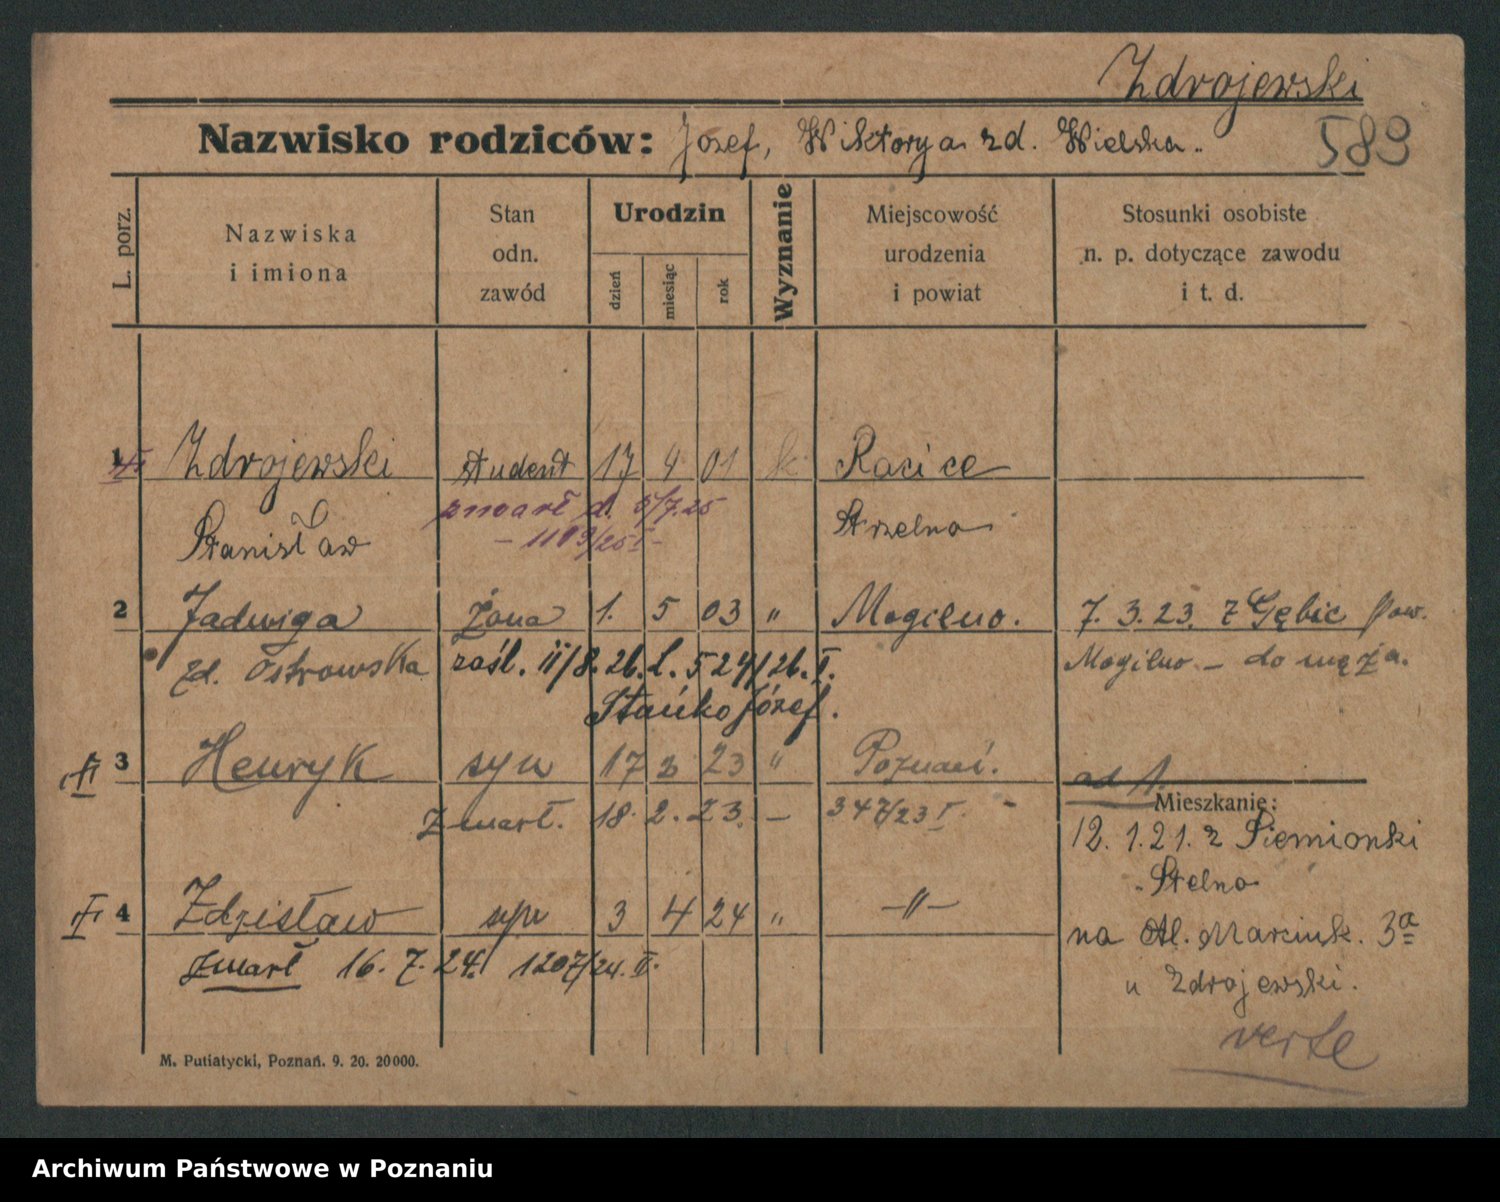 Zdrojewski
Nazwisko rodziców: Józef, Wiktorya zd. Wielska.
589
L. porz.
Nazwiska
i imiona
Stan
odn.
zawód
Urodzin
dzień
miesiąc
rok
Wyznanie
Miejscowość
urodzenia
i powiat
Stosunki osobiste
n. p. dotyczące zawodu
i t. d.
1 Zdrojewski student 17 4 01 k. Racice
zmarł d. 5/7.25
Stanisław Strzelno
- 1183/25 I -
2 Jadwiga Żona 1. 5 03 " Mogilno. 7. 3. 23. z Gębic pow.
zd. Ostrowska zaśl. 11/8. 26. L. 524/26. II. Mogilno - do męża.
Stańko Józef.
3 Henryk syn 17 2 23 " Poznań. ad 1.
Mieszkanie:
Zmarł. 18. 2. 23. - 347/23 I. -
12. 1. 21. z Siemionki
Stelno
4 Zdzisław syn 3 4 24 " -"-
na Al. Marcink. 3a
zmarł 16. 7. 24. 1207/24. II.
u Zdrojewski.
verte
M. Putiatycki, Poznań. 9. 20. 20000.
Archiwum Państwowe w Poznaniu